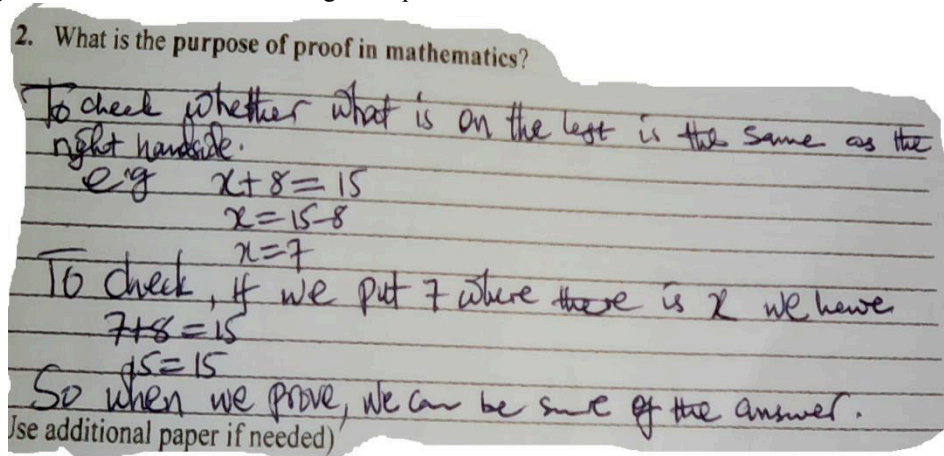 2. What is the purpose of proof in mathematics?
To check whether what is on the left is the same as the
right handside.
eg x+8=15
x=15-8
x=7
To check, if we put 7 where there is x we have
7+8=15
15=15
So when we prove, we can be sure of the answer.
Use additional paper if needed)